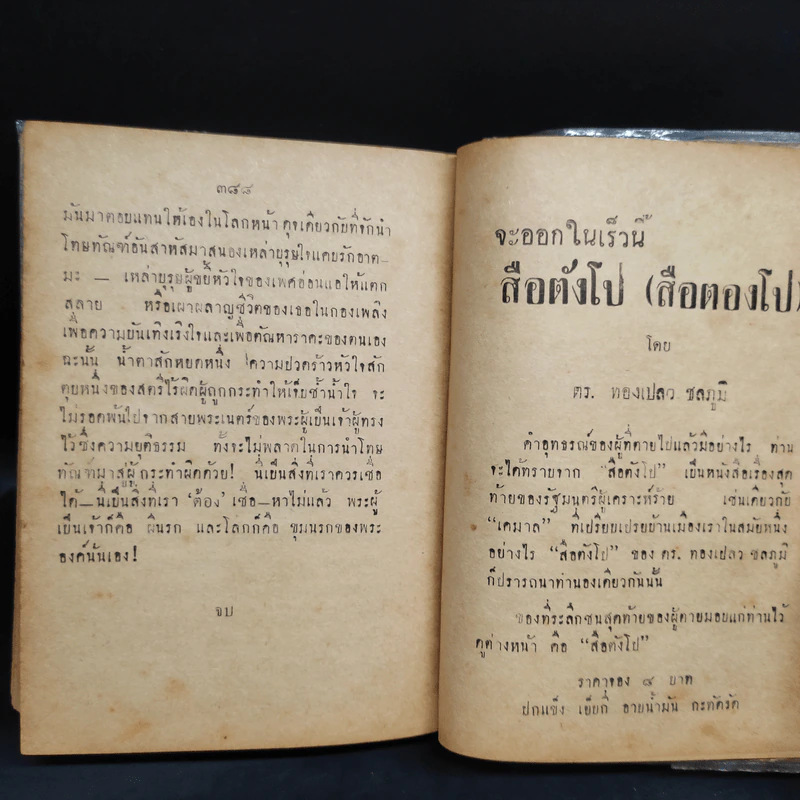 ๓๘๘
มันมาตอบแทนให้เองในโลกหน้า ดุจเดียวกับที่จักนำ
โทษทัณฑ์อันสาหัสมาสนองเหล่าบุรุษใจแคบรักอาต—
มะ — เหล่าบุรุษผู้ขยี้หัวใจของเพศอ่อนแอให้แตก
สลาย หรือเผาผลาญชีวิตของเธอในกองเพลิง
เพื่อความบันเทิงเริงใจและเพื่อตัณหาราคะของตนเอง
ฉะนั้น น้ำตาสักหยดหนึ่ง ความปวดร้าวหัวใจสัก
ตุบหนึ่งของสตรีไร้ผิดผู้ถูกกระทำให้เจ็บช้ำน้ำใจ จะ
ไม่รอดพ้นไปจากสายพระเนตร์ของพระผู้เป็นเจ้าผู้ทรง
ไว้ซึ่งความยุตติธรรม ทั้งจะไม่พลาดในการนำโทษ
ทัณฑ์มาสู่ผู้กระทำผิดด้วย! นี่เป็นสิ่งที่เราควรเชื่อ
ได้—นี่เป็นสิ่งที่เรา ‘ต้อง’ เชื่อ—หาไม่แล้ว พระผู้
เป็นเจ้าก็คือ ผีนรก และโลกก็คือ ขุมนรกของพระ
องค์นั่นเอง!
จบ
จะออกในเร็วนี้
สือตังโป (สือตองโป)
โดย
ดร. ทองเปลว ชลภูมิ
คำอุทธรณ์ของผู้ที่ตายไปแล้วมีอย่างไร ท่าน
จะได้ทราบจาก “สือตังโป” เป็นหนังสือเรื่องสุด
ท้ายของรัฐมนตรีผู้เคราะห์ร้าย เช่นเดียวกับ
“เคมาล” ที่เปรียบเปรยบ้านเมืองเราในสมัยหนึ่ง
อย่างไร “สือตังโป” ของ ดร. ทองเปลว ชลภูมิ
ก็ปรารถนาทำนองเดียวกันนั้น
ของที่ระลึกชนสุดท้ายของผู้ตายมอบแก่ท่านไว้
ดูต่างหน้า คือ “สือตังโป”
ราคาจอง ๘ บาท
ปกแข็ง เย็บกี่ อาบน้ำมัน กะทัดรัด